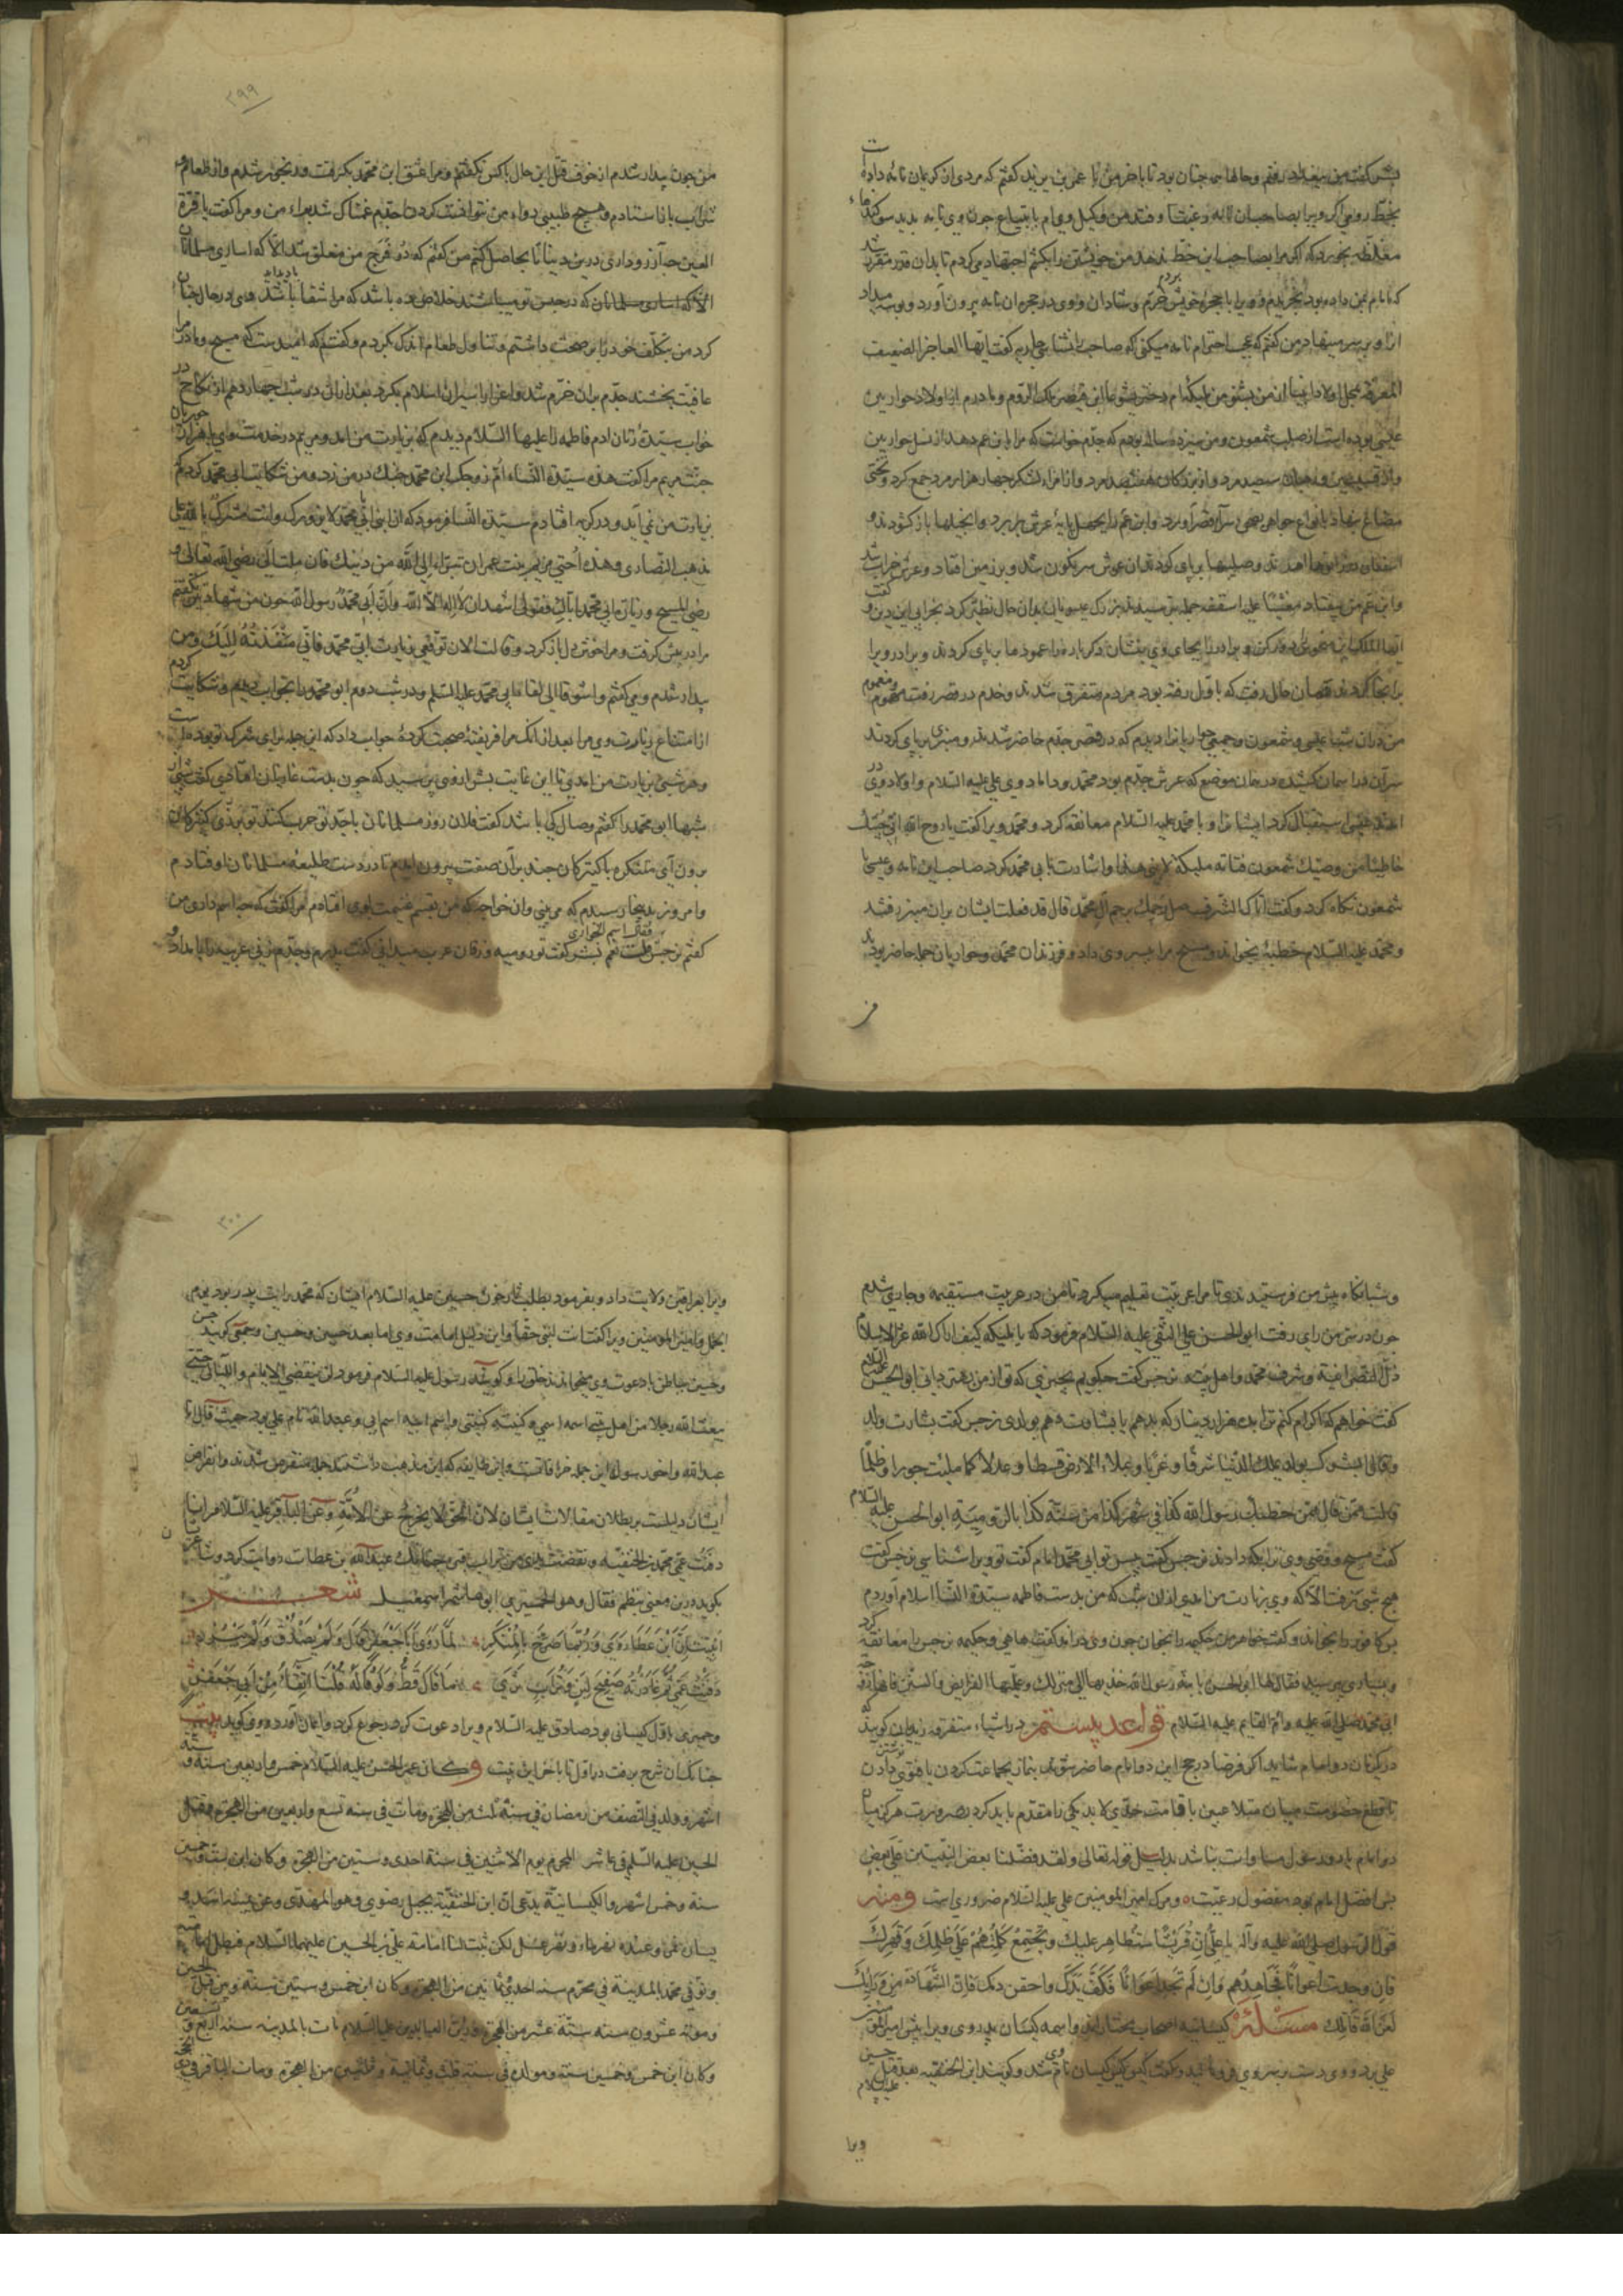 بشر گفت من ببغداد رفتم و حالها همه چنان بود تا با آخر من با عمر بن یزید گفتم که مردی از کریمان نامه داده
بخط رومی اگر ویرا بصاحب آن نامه رغبت افتد من وکیل ویم بابتیاع چون وی نامه بدید سوگندها
مغلظه بخورد که اگر مرا بصاحب این خط ندهد من خویشتن را بکشم اجتهاد میکردم تا بدان قدر مقرر شد
که امام بمن داده بود بخریدم و ویرا با حجره خویش بردم خرم و شادان و وی در حجره آن نامه بیرون آورد و بوسه میداد
و بر سر مینهاد من گفتم که عجب احترام نامه میکنی که صاحب را نشناسی جاریه گفت ایها العاجز الضعیف
المعرفة بمحل اولاد انبیا از من بشنو من ملیکه‌ام دختر یشوعا ابن قیصر ملک الروم و مادرم از اولاد حواریین
عیسی بوده است از صلب شمعون و من سیزده ساله بودم که جدم خواست که مرا بابن عم دهد از نسل حواریین
و از قسیسین و رهبان سیصد مرد و از بزرگان هفتصد مرد و از امراء لشکر چهار هزار مرد جمع کرد و تختی
مصاغ بنهاد بانواع جواهر بصحن سرا قصر آورد و ابن عم را بچهل پایه عرش بر برد و انجیلها باز گشودند و
اسقفان در برابرها آمدند و صلیبها بر پای کردند آن عرش سرنگون شد و بر زمین افتاد و عرش خراب شد
و ابن عم من بیفتاد مغشیا علیه اساقفه جمله بترسیدند بزرگ عیسویان بدان حال تطیر کرد بخرابی این دین و گفت
ایها الملک این منحوس را دور کن و برادر را بجای وی بنشان دگر باره آن عمودها بر پای کردند و برادر ویرا
بر آنجا کردند همان حال رفت که باول رفته بود مردم متفرق شدند و جدم در قصر رفت مهموم و مغموم
من در آن شب عیسی و شمعون و جمعی حواریان را دیدم که در قصر جدم حاضر شدند و منبری بر پای کردند
سر آن در آسمان کشیده در همان موضع که عرش جدم بود محمد و داماد وی علی علیه السلام و اولاد وی در
آمدند عیسی استقبال کرد ایشانرا و با محمد علیه السلام معانقه کرد و محمد ویرا گفت یا روح الله انی جئتک
خاطبا من وصیک شمعون فتاته ملیکة لابنی هذا و اشارت بابی محمد کرد صاحب این نامه و عیسی با
شمعون نگاه کرد و گفت اتاک الشرف صل رحمک برحم آل محمد قال قد فعلت ایشان بر آن منبر رفتند
و محمد علیه السلام خطبه بخواند و مسیح مرا بپسر وی داد و فرزندان محمد و حواریان جمله حاضر بودند
من
٢٩٩
من چون بیدار شدم از خوف قتل این حال با کس نگفتم و مرا عشق ابی محمد بگرفت و رنجور شدم و از طعام و
شراب باز استادم و هیچ طبیبی دواء من نتوانست کرد تا جدم غمناک شد برای من و مرا گفت یا قرة
العین هیچ آرزو داری درین دنیا تا بحاصل کنم من گفتم که در فرج من منغلق شد الا که اساری مسلمانان
الا که اساری مسلمانان که در حبس تو میباشند خلاص ده باشد که مرا شفا باشد وی در حال چنان
کرد من بتکلف خود را بر صحت داشتم و تناول طعام اندک بکردم و گفتم که امید است که مسیح و مادر مرا
عافیت بخشند جدم بدان خرم شد و اعزاز اسیران اسلام بکرد بعد از آن در شب چهاردهم از نکاح در
خواب سیده زنان آدم فاطمه را علیها السلام دیدم که بزیارت من آمد و مریم در خدمت وی با هزار حوریان
جنت مریم مرا گفت هذه سیدة النساء ام زوجک ابی محمد چنگ در من زد و من شکایت ابی محمد کردم که
بزیارت من نمی‌آید و در گریه افتادم سیدة النسا فرمود که ان ابنی ابا محمد لا یزورک و انت مشرکة بالله علی
مذهب النصاری و هذه اختی مریم بنت عمران تبرأ الی الله من دینک فان ملت الی رضی الله تعالی و
رضی المسیح و زیارة ابی محمد ایاک فقولی اشهد ان لا اله الا الله و ان ابی محمد رسول الله چون من شهادتین گفتم
مرا در بر گرفت و مرا خوش دل باز کرد و قالت الان توقعی زیارت ابی محمد فانی منفذته الیک و من
بیدار شدم و می گفتم وا شوقا الی لقاء ابی محمد علیه السلم و در شب دوم ابو محمد را بخواب دیدم و شکایت کردم
از امتناع زیارت وی مرا بعد از آنک مرا فریفته صحبت کرده جواب داد که این جمله برای شرک تو بوده است
و هر شبی بزیارت من آمدی تا این غایت بشر از وی پرسید که چون بدست غازیان افتادی گفت شبی از
شبها ابو محمد را گفتم وصال کی باشد گفت فلان روز مسلمانان با جد تو حرب کنند تو بزی کنیزکان
برون آی متنکره با کنیزکان چند بر آن صفت بیرون آمدم تا در دست طلیعه مسلمانان افتادم
و امروز بدینجا رسیدم که می بینی و آن خواجه که من بقسم غنیمت اوی افتادم مرا گفت که چه اسم داری من
فقال اسم الجواری
گفتم نرجس بشر گفت تو رومیه و زفان عرب میدانی گفت پدرم و جدم زنی عربیه را بامداد و
و شبانگاه پیش من فرستیدندی تا مرا عربیت تعلیم میکرد تا من در عربیت مستقیمه و جاریه شدم
چون در سر من رای رفت ابو الحسن علی النقی علیه السلام فرمود که یا ملیکه کیف اراک الله عز الاسلام
ذل النصرانیة و شرف محمد و اهل بیته نرجس گفت چگویم بچیزی که تو از من بهتر دانی ابو الحسن علیه السلام
گفت خواهم که اکرام کنم ترا بده هزار دینار که بدهم یا بشارت دهم بولدی نرجس گفت بشارت ولد
و قال ابشرک بولد یملک الدنیا شرقا و غربا و یملاء الارض قسطا و عدلا کما ملئت جورا و ظلما
قالت ممن قال ممن خطبک رسول الله کذا فی شهر کذا من سنة کذا بالرومیة ابو الحسن علیه السلام
گفت مسیح و وصی وی ترا بکه دادند نرجس گفت پسر تو ابی محمد امام گفت تو ویرا شناسی نرجس گفت
هیچ شبی نرفت الا که وی بزیارت من آمدی از آن شب که من بدست فاطمه سیدة النسا اسلام آوردم
پس کافور را بخواند و گفت خواهرم حکیمه را بخوان چون وی در آمد گفت ها هی و حکیمه نرجس را معانقه کرد
و بسیاری بپرسید فقال لها ابو الحسن یا بنة رسول الله خذیها الی منزلک و علمیها الفرایض و السنن فانها زوجة
ابی محمد صلی الله علیه و ام القایم علیه السلام قواعد بیستم در اشیاء متفرقه زیدیان گویند که
در یک زمان دو امام شاید اگر فرضا در حج این دو امام حاضر شوند بنماز بجماعت کردن یا فتوی نوشتن دادن
تا قطع خصومت میان متلاعبین یا قامت حدی لا بد یکی را مقدم باید کرد بضرورت هر گز میان
دو امام یا دو رسول مساوات نباشد بدلیل قوله تعالی و لقد فضلنا بعض النبیین علی بعض
پس افضل امام بود مفضول رعیت و مرگ امیر المومنین علی علیه السلام ضروری است و منه
قول الرسول صلی الله علیه و آله یا علی ان قریشا ستظاهر علیک و تجتمع کلمتهم علی ظلمک و قهرک
فان وجدت اعوانا فجاهدهم و ان لم تجد اعوانا فکف یدک و احقن دمک فان الشهادة من ورائک
لعن الله قاتلک مسئله کیسانیه اصحاب مختارند و اسمه کیسان پدر وی ویرا پیش امیر المومنین
علی برد و وی دست بر سر وی فرو مالید و گفت کیس کیس کیسان نام وی شد و گویند ابن الحنفیه بعد قتل حسین
علیه السلام
ویرا
٣٠٠
ویرا بعراقین ولایت داد و بفرمود بطلب ثار خون حسین علیه السلام ایشان که محمد رایت پدر بود یوم
الجمل و امیر المومنین ویرا گفت انت ابنی حقا و این دلیل امامت وی اما بعد حسین و جمعی گویند حسن
و حسین بباطن با دعوت وی میخواندند خلق را و گویند رسول علیه السلام فرمود لن ینقضی الایام و اللیالی حتی
یبعث الله رجلا من اهل بیتی اسمه اسمی و کنیته کنیتی و اسم ابیه اسم ابی و عبد الله نام علی بود حیث قال انا
عبد الله و اخو رسوله این جمله خرافاتست و این طایفه که این مذهب داشتند جمله منقرض شدند و انقراض
ایشان دلیلست بر بطلان مقالات ایشان لان الحق لا یخرج عن الامة و عن الباقر علیه السلام انا
دفنت عمی محمد بن الحنفیه و نفضت یدی من تراب قبره چنانک عبد الله بن عطا روایت کرد و شاعر
بگوید درین معنی نظم فقال و هو الحمیری ابو هاشم اسمعیل شعر
دفنت عمی ثم غادرته صفیح لبن و تراب ثری ما قال قط و لو قاله قلنا اتقاء من ابی جعفر
و حمیری باول کیسانی بود صادق علیه السلام ویرا دعوت کرد رجوع کرد و ایمان آورد و وی گوید بیت
چنانک آن شرح برفت در اول تا باخر این بیت و کان عمر الحسن علیه السلام خمس و اربعین سنة و ستة
اشهر و ولد فی النصف من رمضان فی سنة ثلث من الهجرة و مات فی سنه تسع و اربعین من الهجرة و قتل
الحسین علیه السلم فی عاشر المحرم یوم الاثنین فی سنة احدی و ستین من الهجرة و کان ابن ست و خمسین
سنة و خمس اشهر و الکیسانیة یدعی ان ابن الحنفیة بجبل رضوی و هو المهدی و عن یمینه اسد و
یسار نمر و عنده نهر ماء و نهر عسل لکن ثبت لنا امامة علی بن الحسین علیهما السلام فبطل امامته
و توفی محمد بالمدینة فی محرم سنه احدی ثمانین من الهجرة و کان ابن خمس و ستین سنة و بین قتل الحسین
و موته عشرون سنة ستة عشر من الهجرة و زین العابدین علیه السلام مات بالمدینه سنة اربع و تسعین
و کان ابن خمس و خمسین سنة و مولده فی سنة ثلث و ثمانیة و ثلثین من الهجرة و مات الباقر فی ذی الحجة